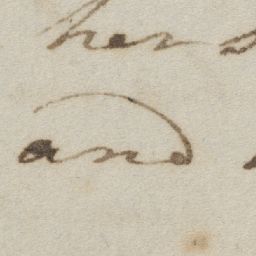 her
and